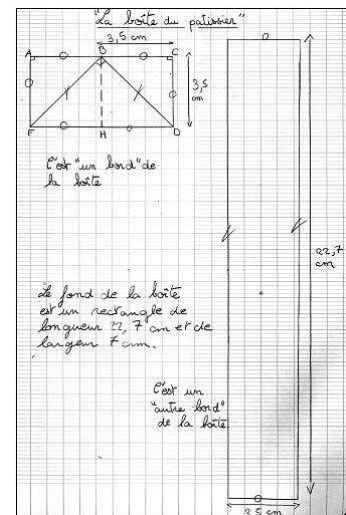 "La boîte du patissier"
3,5 cm
A B C
3,5
cm
F H D
C'est "un bord" de
la boîte
22,7
cm
Le fond de la boîte
est un rectangle de
longueur 22,7 cm et de
largeur 7 cm.
C'est un
"autre bord"
de la boîte
3,5 cm